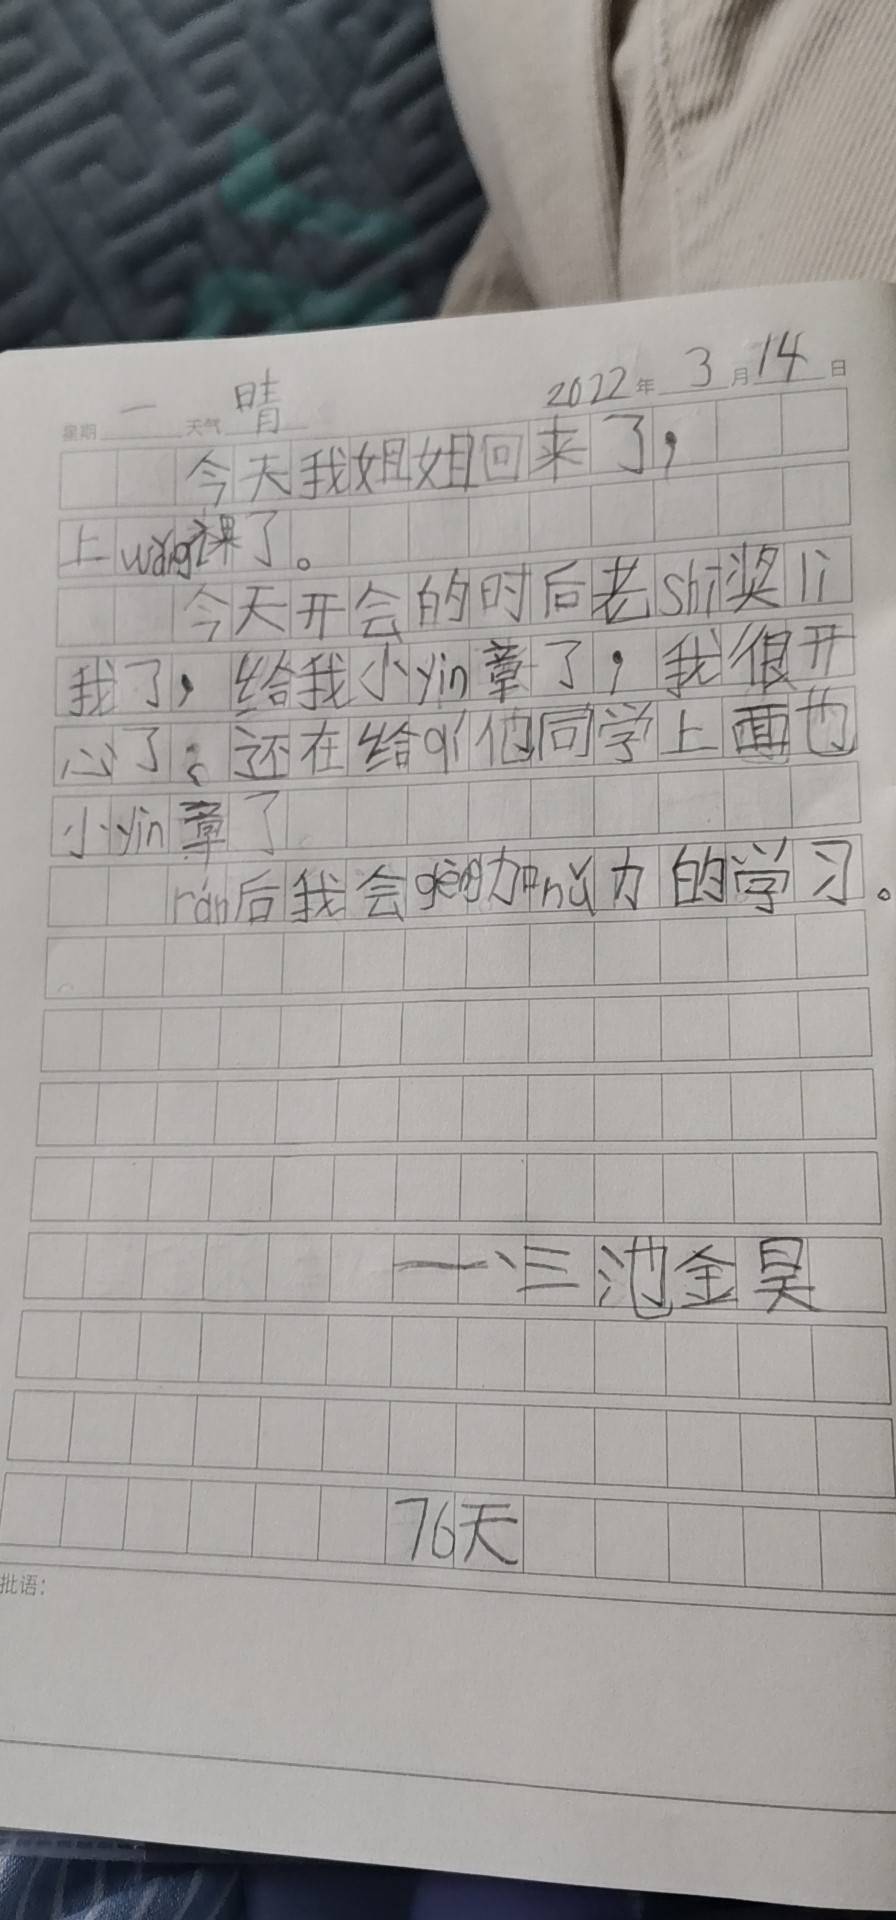 星期 一 天气 晴 2022年 3月14日
今天我姐姐回来了，
上wǎng课了。
今天开会的时后老shī奖lì
我了，给我小yìn章了，我很开
心了。还在给qí他同学上面也
小yìn章了
rán后我会gèng加nǔ力的学习。
一、三池金昊
76天
批语：